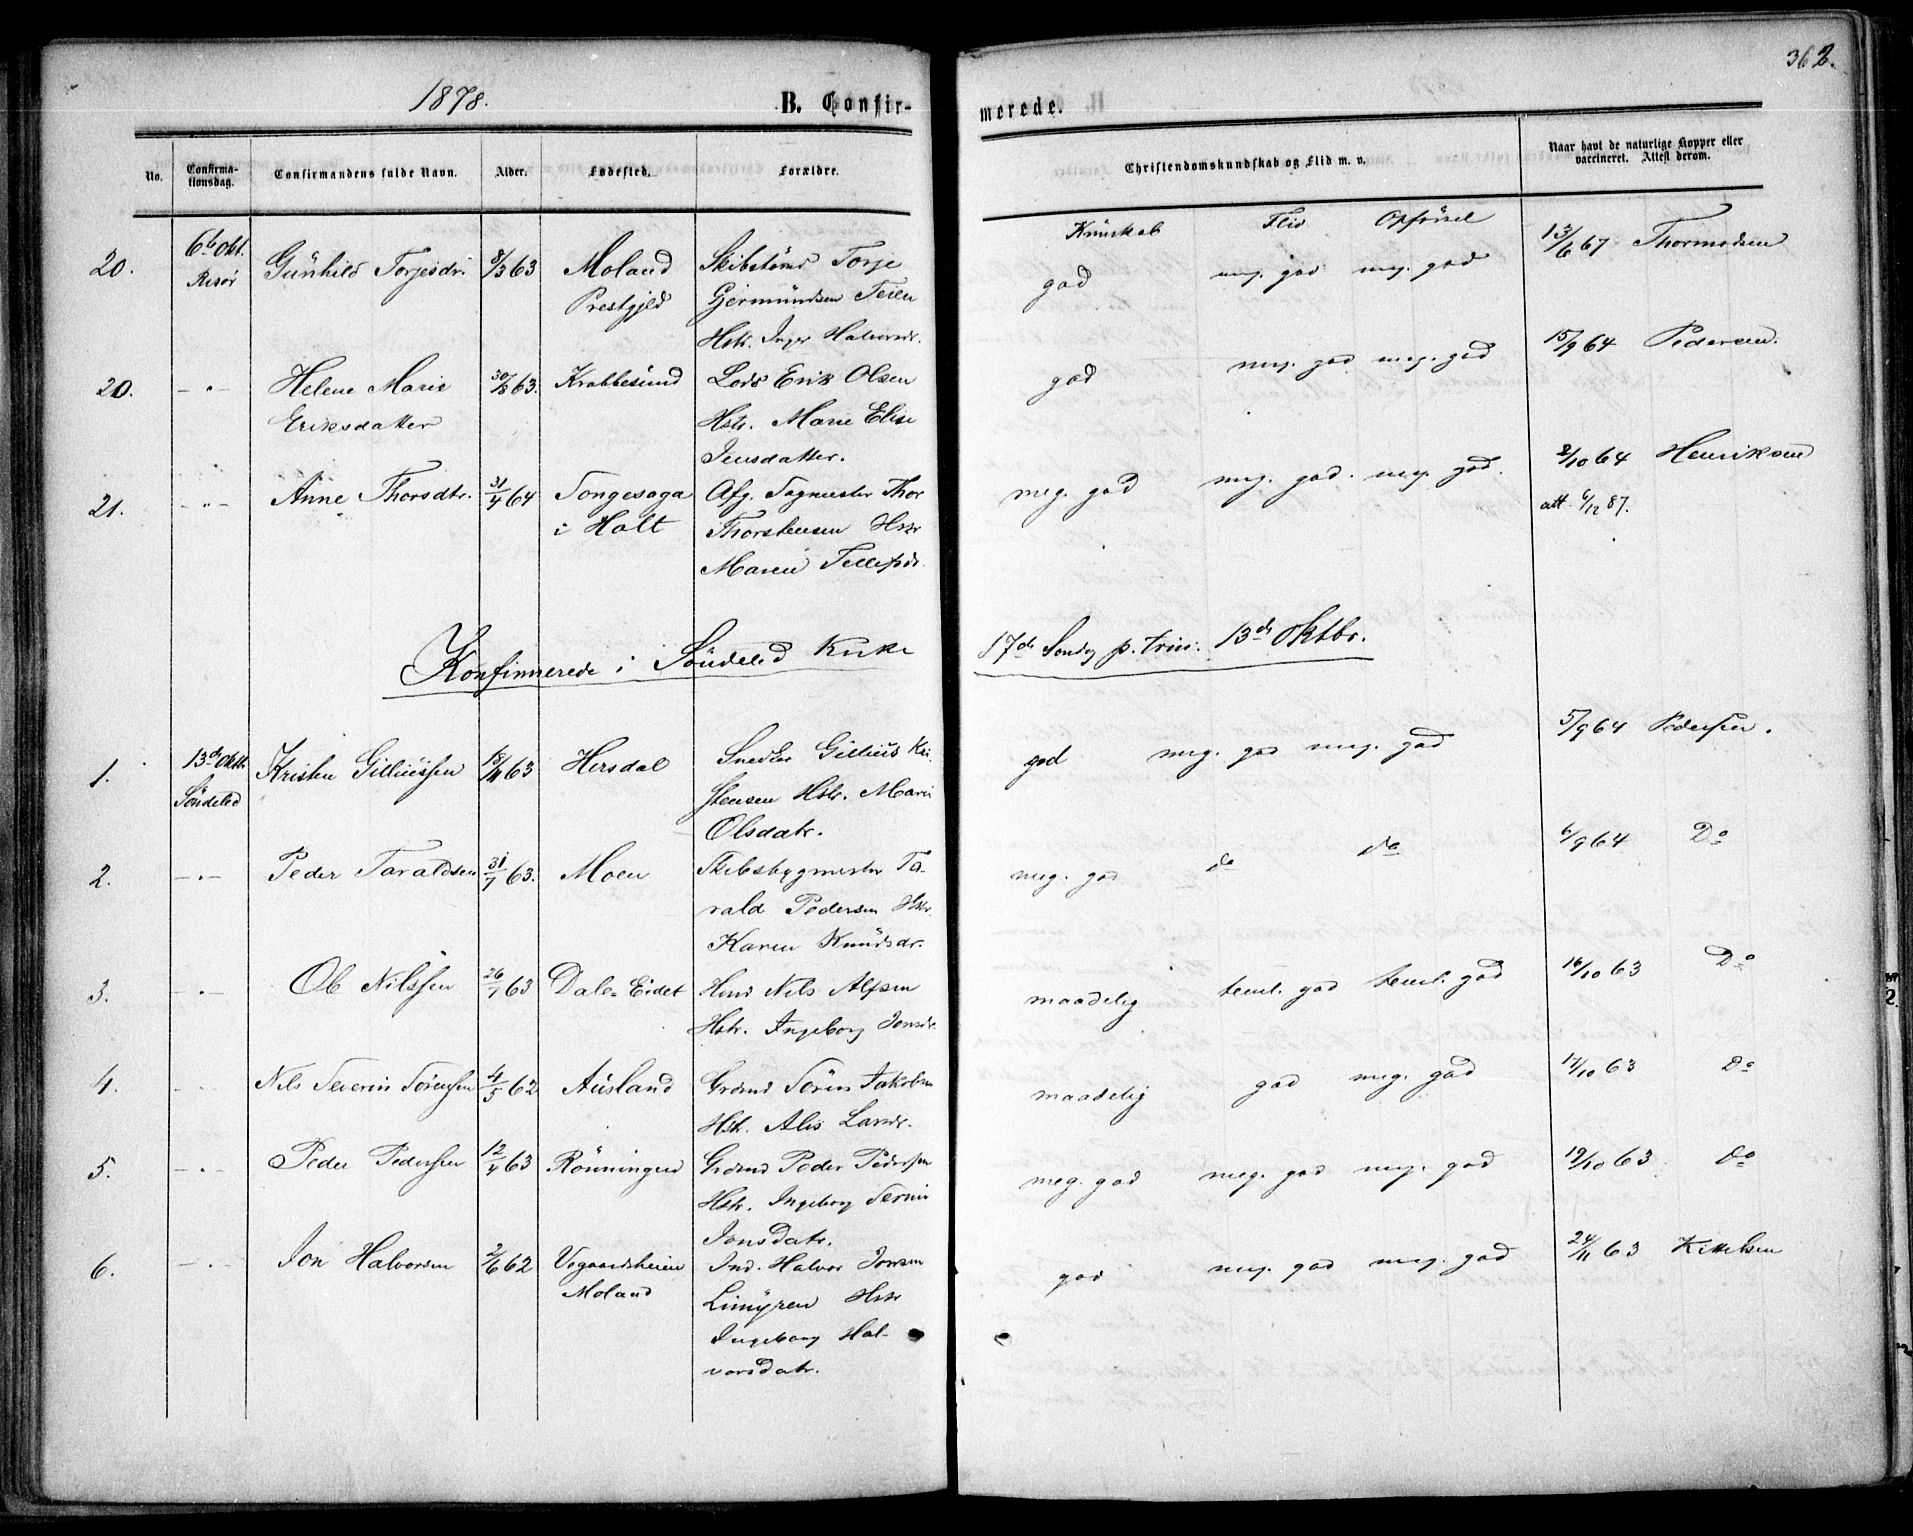 1878.
B. Confir-
merede.
362.
No.
Confirma-
tionsdag.
Confirmandens fulde Navn.
Alder.
Fødested.
Forældre.
Christendomskundskab og Flid m. v.
Naar havt de naturlige Kopper eller
vaccineret. Attest derom.
Kundskab Flid Opförsel
20. 6te Okt. Gunhild Torjesdr. 8/3 63 Moland Skibstømr Torje god meg. god meg. god 13/6 67 Thormodsen
Risør Prestgjeld Gjermundsen Teien
Hstr. Inger Halvorsdr.
20. - " - Helene Marie 30/8 63. Krabbesund Lods Erik Olsen god meg. god meg. god 15/9 64 Pedersen.
Eriksdatter Hstr. Marie Elise
Jensdatter.
21. - " - Anne Thorsdtr. 31/4 64 Songesaga Afg. Sagmester Thor meg. god meg. god. meg. god. 2/10 64 Henriksen
i Holt Thorstensen Hstr att. 6/12 87.
Maren Tellefsdr.
Konfirmerede i Söndeled Kirke 17de Søndg p. trin. 13de Oktbr.
1. 13de Oktbr Kristen Gilliussen 18/11 63 Hersdal Snedker Gillius Kri- god meg. god meg. god 5/9 64 Pedersen.
Söndeled stensen Hstr. Maren
Olsdatr.
2. - " - Peder Taraldsen 31/7 63. Moen Skibsbygmester Ta- meg. god do do 6/9 64 Do
rald Pedersen Hstr.
Karen Knudsdr.
3. - " - Ole Nilssen 26/7 63 Dale-Eidet Hmd Nils Alfsen maadelig teml. god teml. god 16/10 63 Do
Hstr. Ingeborg Jonsdr.
4. - " - Nils Severin Sörensen 4/5 62 Ausland Grdmd Sören Jakobsen maadelig god meg. god 17/10 63 Do
Hstr. Alis Larsdr.
5. - " - Peder Pedersen 12/4 63 Rönningen Grdmd Peder Pedersen meg. god meg. god meg. god 19/10 63 Do
Hstr. Ingeborg Serine
Jonsdatr.
6. - " - Jon Halvorsen 2/6 62 Vegaardsheien Ind. Halvor Jonsen god meg. god meg. god 24/11 63 Kittelsen
Moland Limyren Hstr
Ingeborg Hal-
vorsdatr.